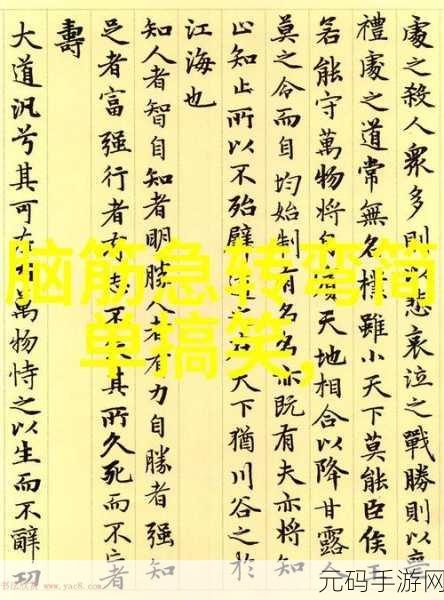 處之殺人衆多則以悲哀泣之戰勝則以喪
禮處之道常無名樸雖小天下莫能臣侯王
若能守萬物將自賓天地相合以降甘露
莫之令而自均始制有名名亦既有夫亦將知
止知止所以不殆譬道之在天下猶川谷之於
江海也
知人者智自知者明勝人者有力自勝者強知
足者富強行者有志不其所久死而不亡者
壽
大道汎兮其可左右萬物恃之以生而不辭功
脑筋急转弯简
单搞笑,
书法欣赏 www.yac8.com
元码手游网